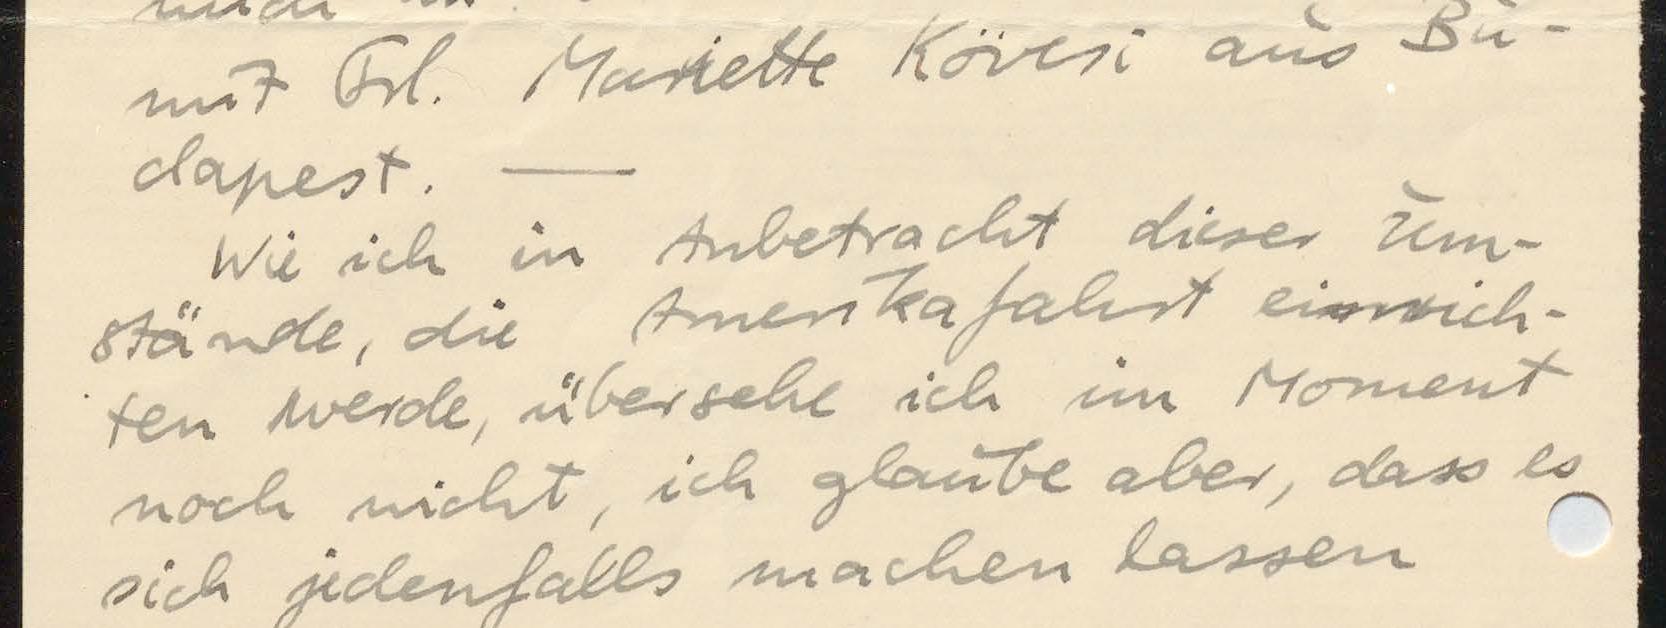 mit Frl. Mariette Kövesi aus Bu-
dapest. —
Wie ich in Anbetracht dieser Um-
stände, die Amerikafahrt einrich-
ten werde, übersehe ich im Moment
noch nicht, ich glaube aber, dass es
sich jedenfalls machen lassen